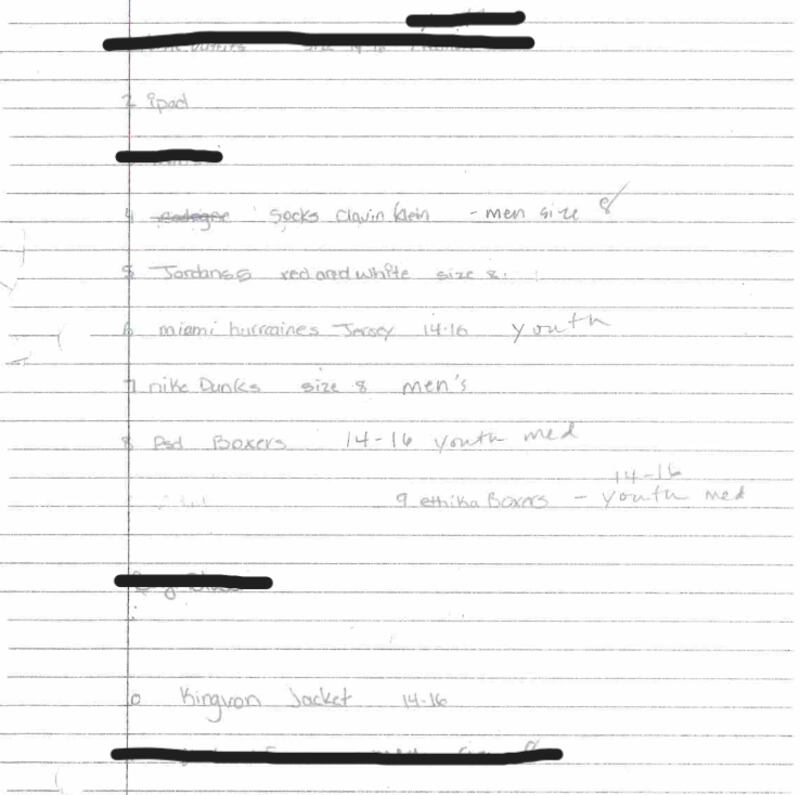 2 ipad
4 cologne socks Clavin Klein - men size 8
5 Jordanss red and white size 8.
6 miami hurrcaines Jersey 14-16 youth
7 nike Dunks size 8 men's
8 Psd Boxers 14-16 youth med
14-16
9 ethika Boxers - youth med
10 Kingvon Jacket 14-16